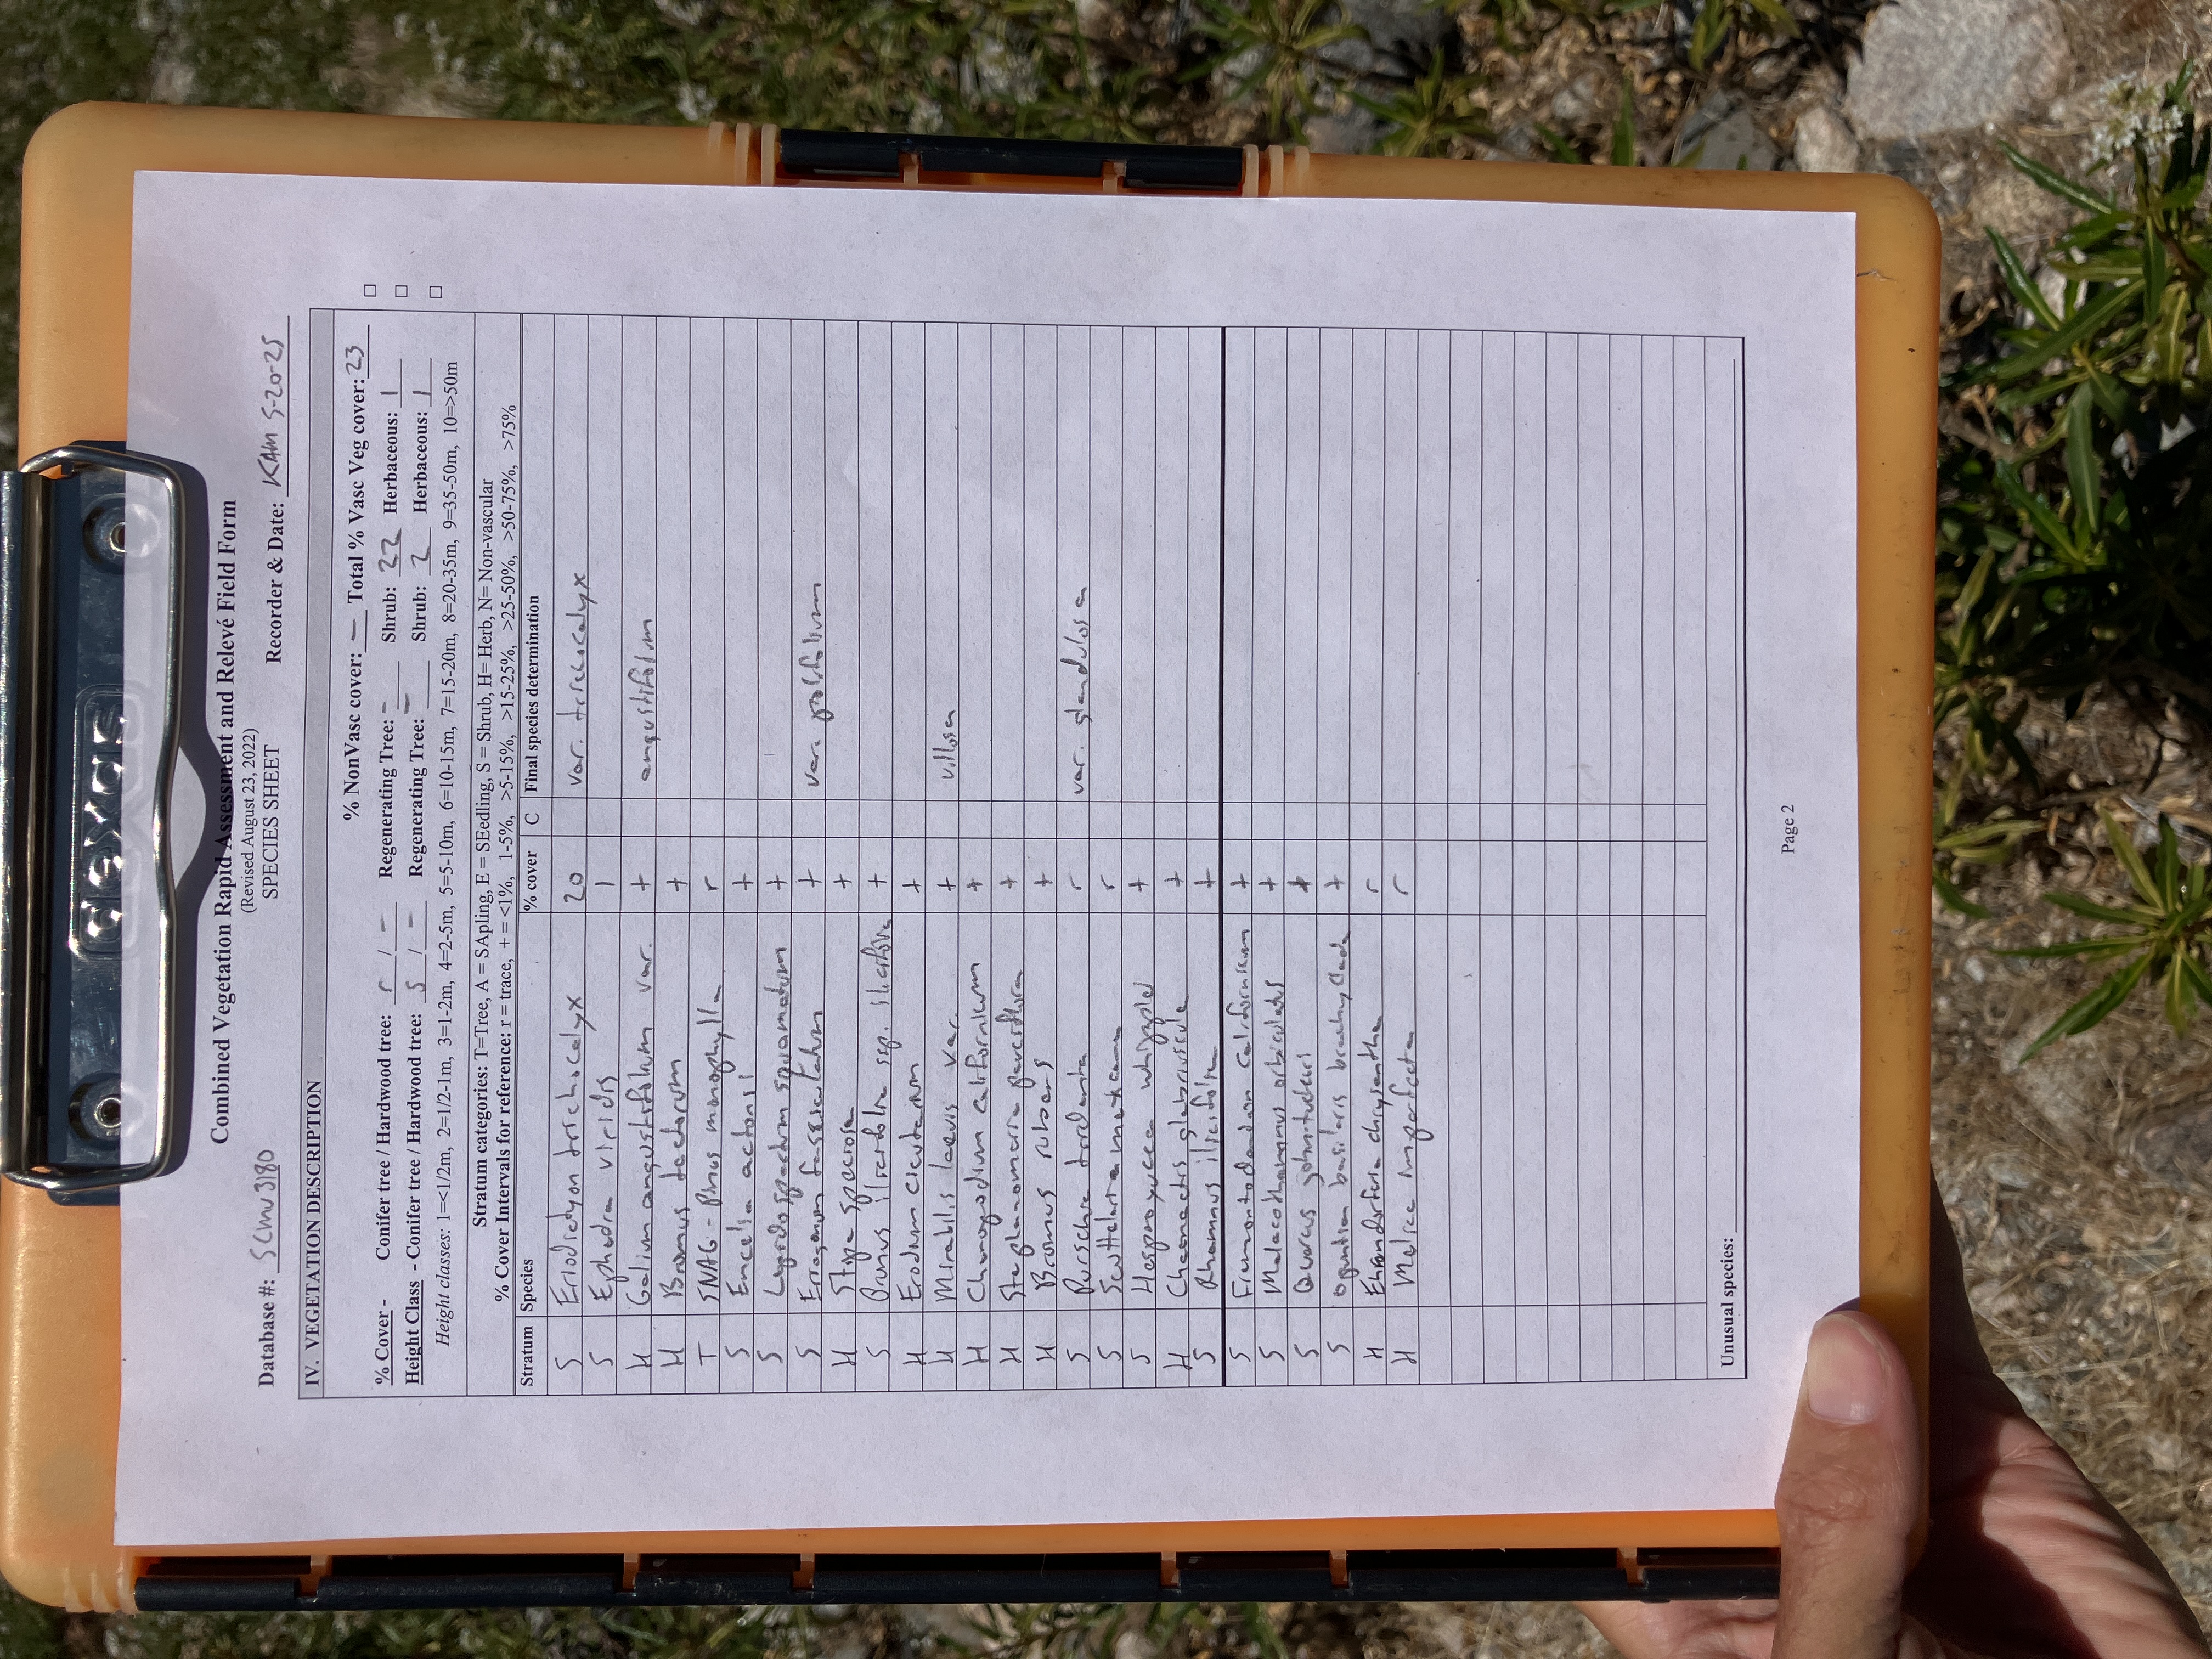 dexas
Combined Vegetation Rapid Assessment and Relevé Field Form
(Revised August 23, 2022)
SPECIES SHEET
Database #: SCMU3180 Recorder & Date: KAM 5-20-25
IV. VEGETATION DESCRIPTION
% NonVasc cover: – Total % Vasc Veg cover: 23
% Cover - Conifer tree / Hardwood tree: r / – Regenerating Tree: – Shrub: 22 Herbaceous: 1
Height Class - Conifer tree / Hardwood tree: 5 / – Regenerating Tree: – Shrub: 2 Herbaceous: 1
Height classes: 1=<1/2m, 2=1/2-1m, 3=1-2m, 4=2-5m, 5=5-10m, 6=10-15m, 7=15-20m, 8=20-35m, 9=35-50m, 10=>50m
Stratum categories: T=Tree, A = SApling, E = SEedling, S = Shrub, H= Herb, N= Non-vascular
% Cover Intervals for reference: r = trace, + = <1%, 1-5%, >5-15%, >15-25%, >25-50%, >50-75%, >75%
Stratum Species % cover C Final species determination
S Eriodictyon trichocalyx 20 var. trichocalyx
S Ephedra viridis 1
H Galium angustifolium var. + angustifolium
H Bromus tectorum +
T SNAG - Pinus monophylla r
S Encelia actoni +
S Lepidospartum squamatum +
S Eriogonum fasciculatum + var. polifolium
H Stipa speciosa +
S Prunus ilicifolia ssp. ilicifolia +
H Erodium cicutarium +
H Mirabilis laevis var. + villosa
H Chenopodium californicum +
H Stephanomeria pauciflora +
H Bromus rubens +
S Purschia tridentata r var. glandulosa
S Scutellaria mexicana r
S Hesperoyucca whipplei +
H Chaenactis glabriuscula +
S Rhamnus ilicifolia +
S Fremontodendron californicum +
S Malacothamnus orbiculatus +
S Quercus john-tuckeri +
S Opuntia basilaris brachyclada +
H Ehrendorferia chrysantha r
H Melica imperfecta r
Unusual species:
Page 2